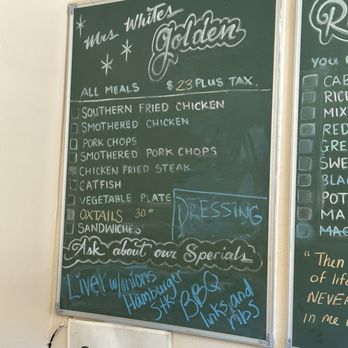 Mrs White's
golden
ALL MEALS $23 PLUS TAX.
SOUTHERN FRIED CHICKEN
SMOTHERED CHICKEN
PORK CHOPS
SMOTHERED PORK CHOPS
CHICKEN FRIED STEAK
CATFISH
VEGETABLE PLATE
OXTAILS 30⁰⁰
SANDWICHES
DRESSING
Ask about our Specials
Liver w/onions
Hamburger
Stk
BBQ
links and
ribs
R
you
CAB
RICE
MIX
RED
GRE
SWE
BLA
POT
MA
MAC
"Then
of life
NEVER
in me